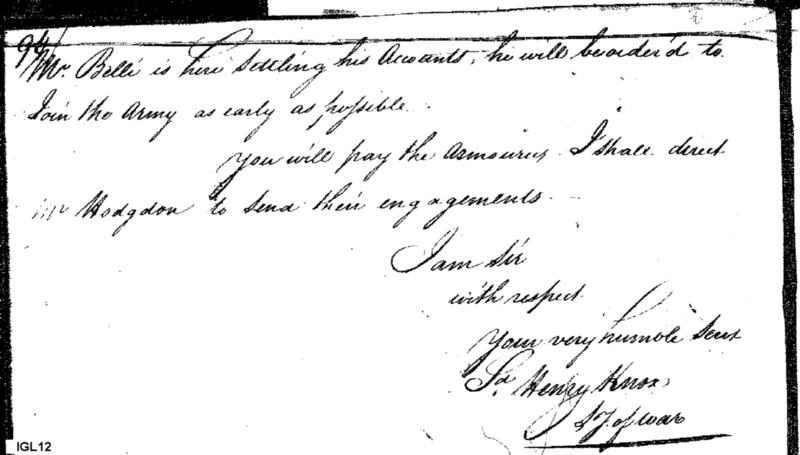 94/
Mr. Belli is here Settling his Accounts, he will be order'd to
Join the Army as early as possible.
You will pay the Armourers. I shall direct
Mr Hodgdon to send their engagements.
I am Sir
with respect
Your very humble Servt
Sd. Henry Knox
Sy. of War
IGL12